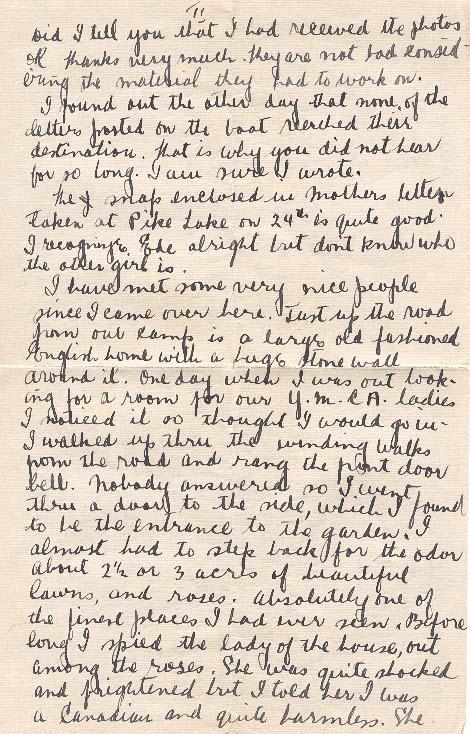 II
Did I tell you that I had received the photos
OK thanks very much. They are not bad consid-
ering the material they had to work on.
I found out the other day that none of the
letters posted on the boat reached their
destination. That is why you did not hear
for so long. I am sure I wrote.
The snap enclosed in Mothers letter
taken at Pike Lake on 24th is quite good.
I recognize alright but dont know who
the other girl is.
I have met some very nice people
since I came over here. Just up the road
from our camp is a large old fashioned
English home with a huge stone wall
around it. One day when I was out look-
ing for a room for our Y.M.C.A. ladies
I noticed it so thought I would go in.
I walked up thru the winding walks
from the road and rang the front door
bell. Nobody answered so I went
thru a door to the side, which I found
to be the entrance to the garden. I
almost had to step back for the odor
about 2½ or 3 acres of beautiful
lawns, and roses. Absolutely one of
the finest places I had ever seen. Before
long I spied the lady of the house, out
among the roses. She was quite shocked
and frightened but I told her I was
a Canadian and quite harmless. She